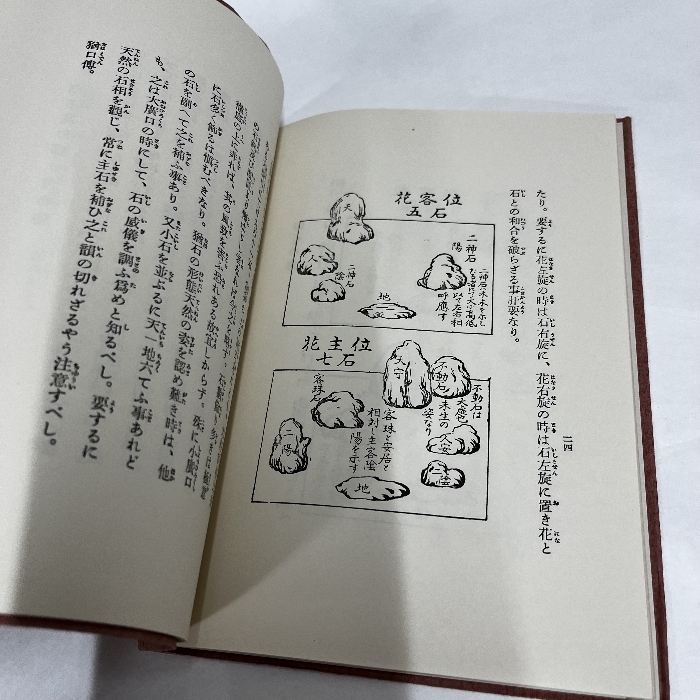 二四
たり。要するに花左旋の時は石右旋に、花右旋の時は石左旋に置き花と
石との和合を破らざる事肝要なり。
花客位
五石
天
二神石
陽
二神石
陰
地
呼應す
花主位
七石
天守
不動石
不動石は
大麁也
未生の
姿なり
客珠石
客珠と安居と
相対し主客陰
陽を示す
二陽
人安
二陰
地
に石多く飾るは慎むべきなり。猶石の形態天然の姿を認め難き時は、他
の石を副へて之を補ふ事あり。又小石を並ぶるに天一地六てふ事あれど
も、之は大廣口の時にして、石の威儀を調ふ爲めと知るべし。要するに
天然の石相を觀じ、常に主石を補ひ之と韻の切れざるやう注意すべし。
猶口傳。